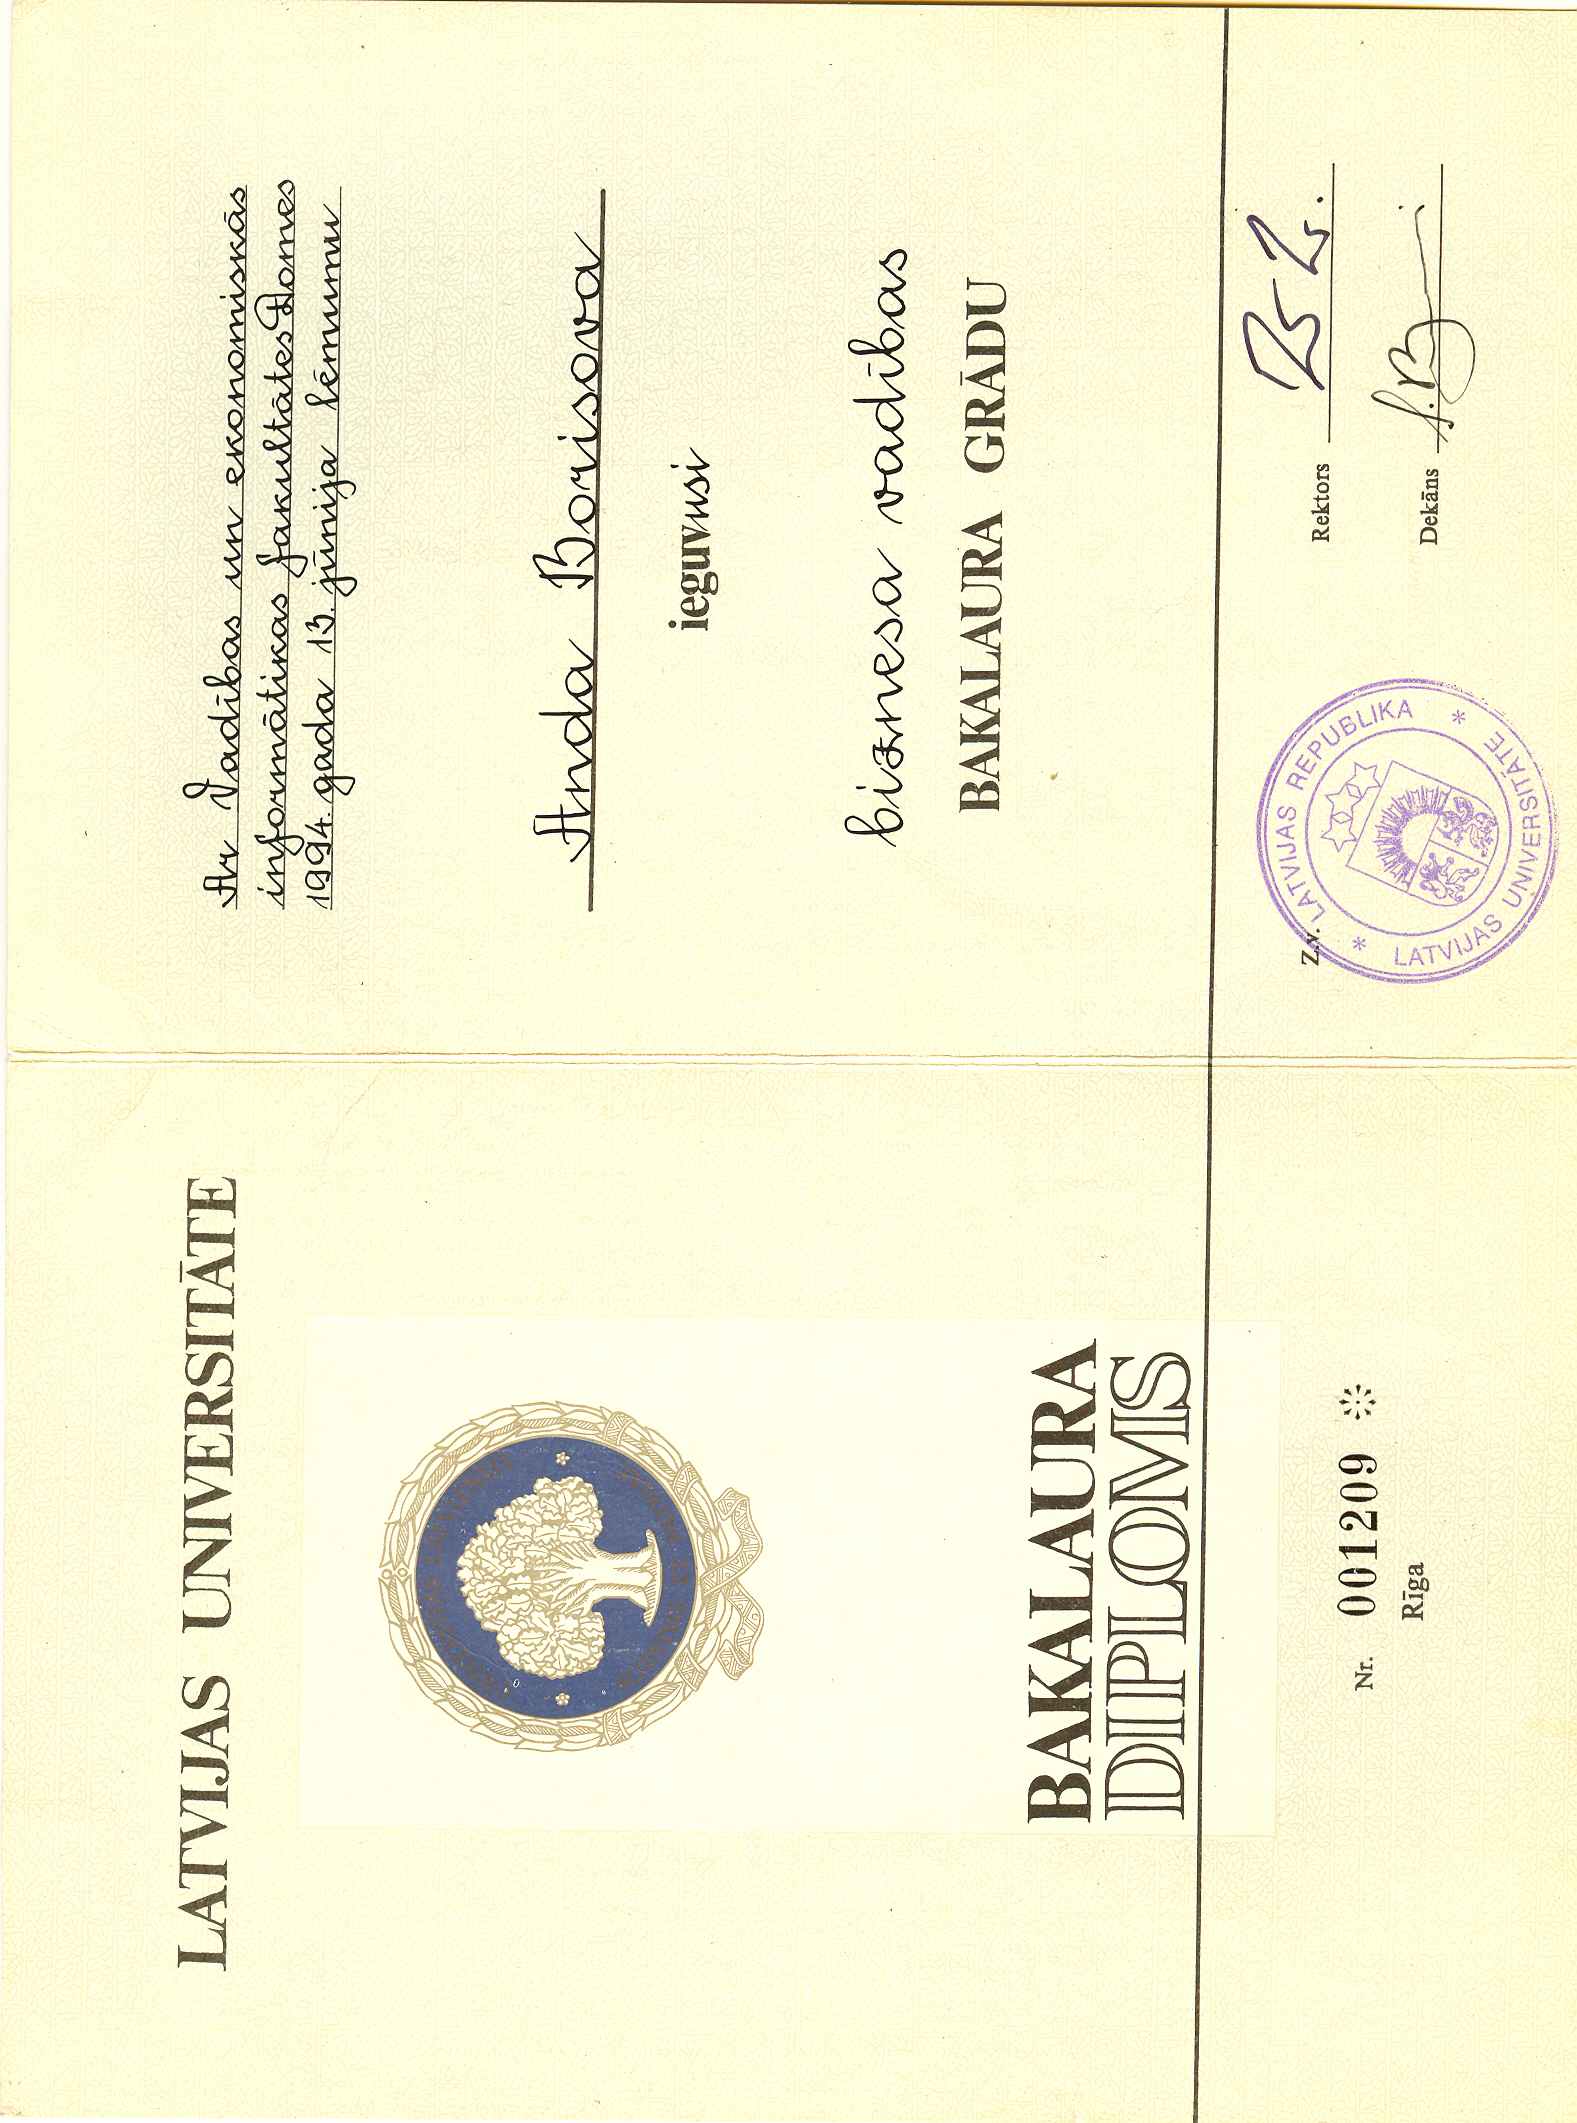 LATVIJAS UNIVERSITĀTE
BAKALAURA
DIPLOMS
Nr. 001209
Rīga
Ar Vadības un ekonomiskās
informātikas fakultātes Domes
1994. gada 13. jūnija lēmumu
Anda Borisova
ieguvusi
biznesa vadības
BAKALAURA GRĀDU
Rektors
Dekāns
Z.v.
* LATVIJAS REPUBLIKA *
LATVIJAS UNIVERSITĀTE